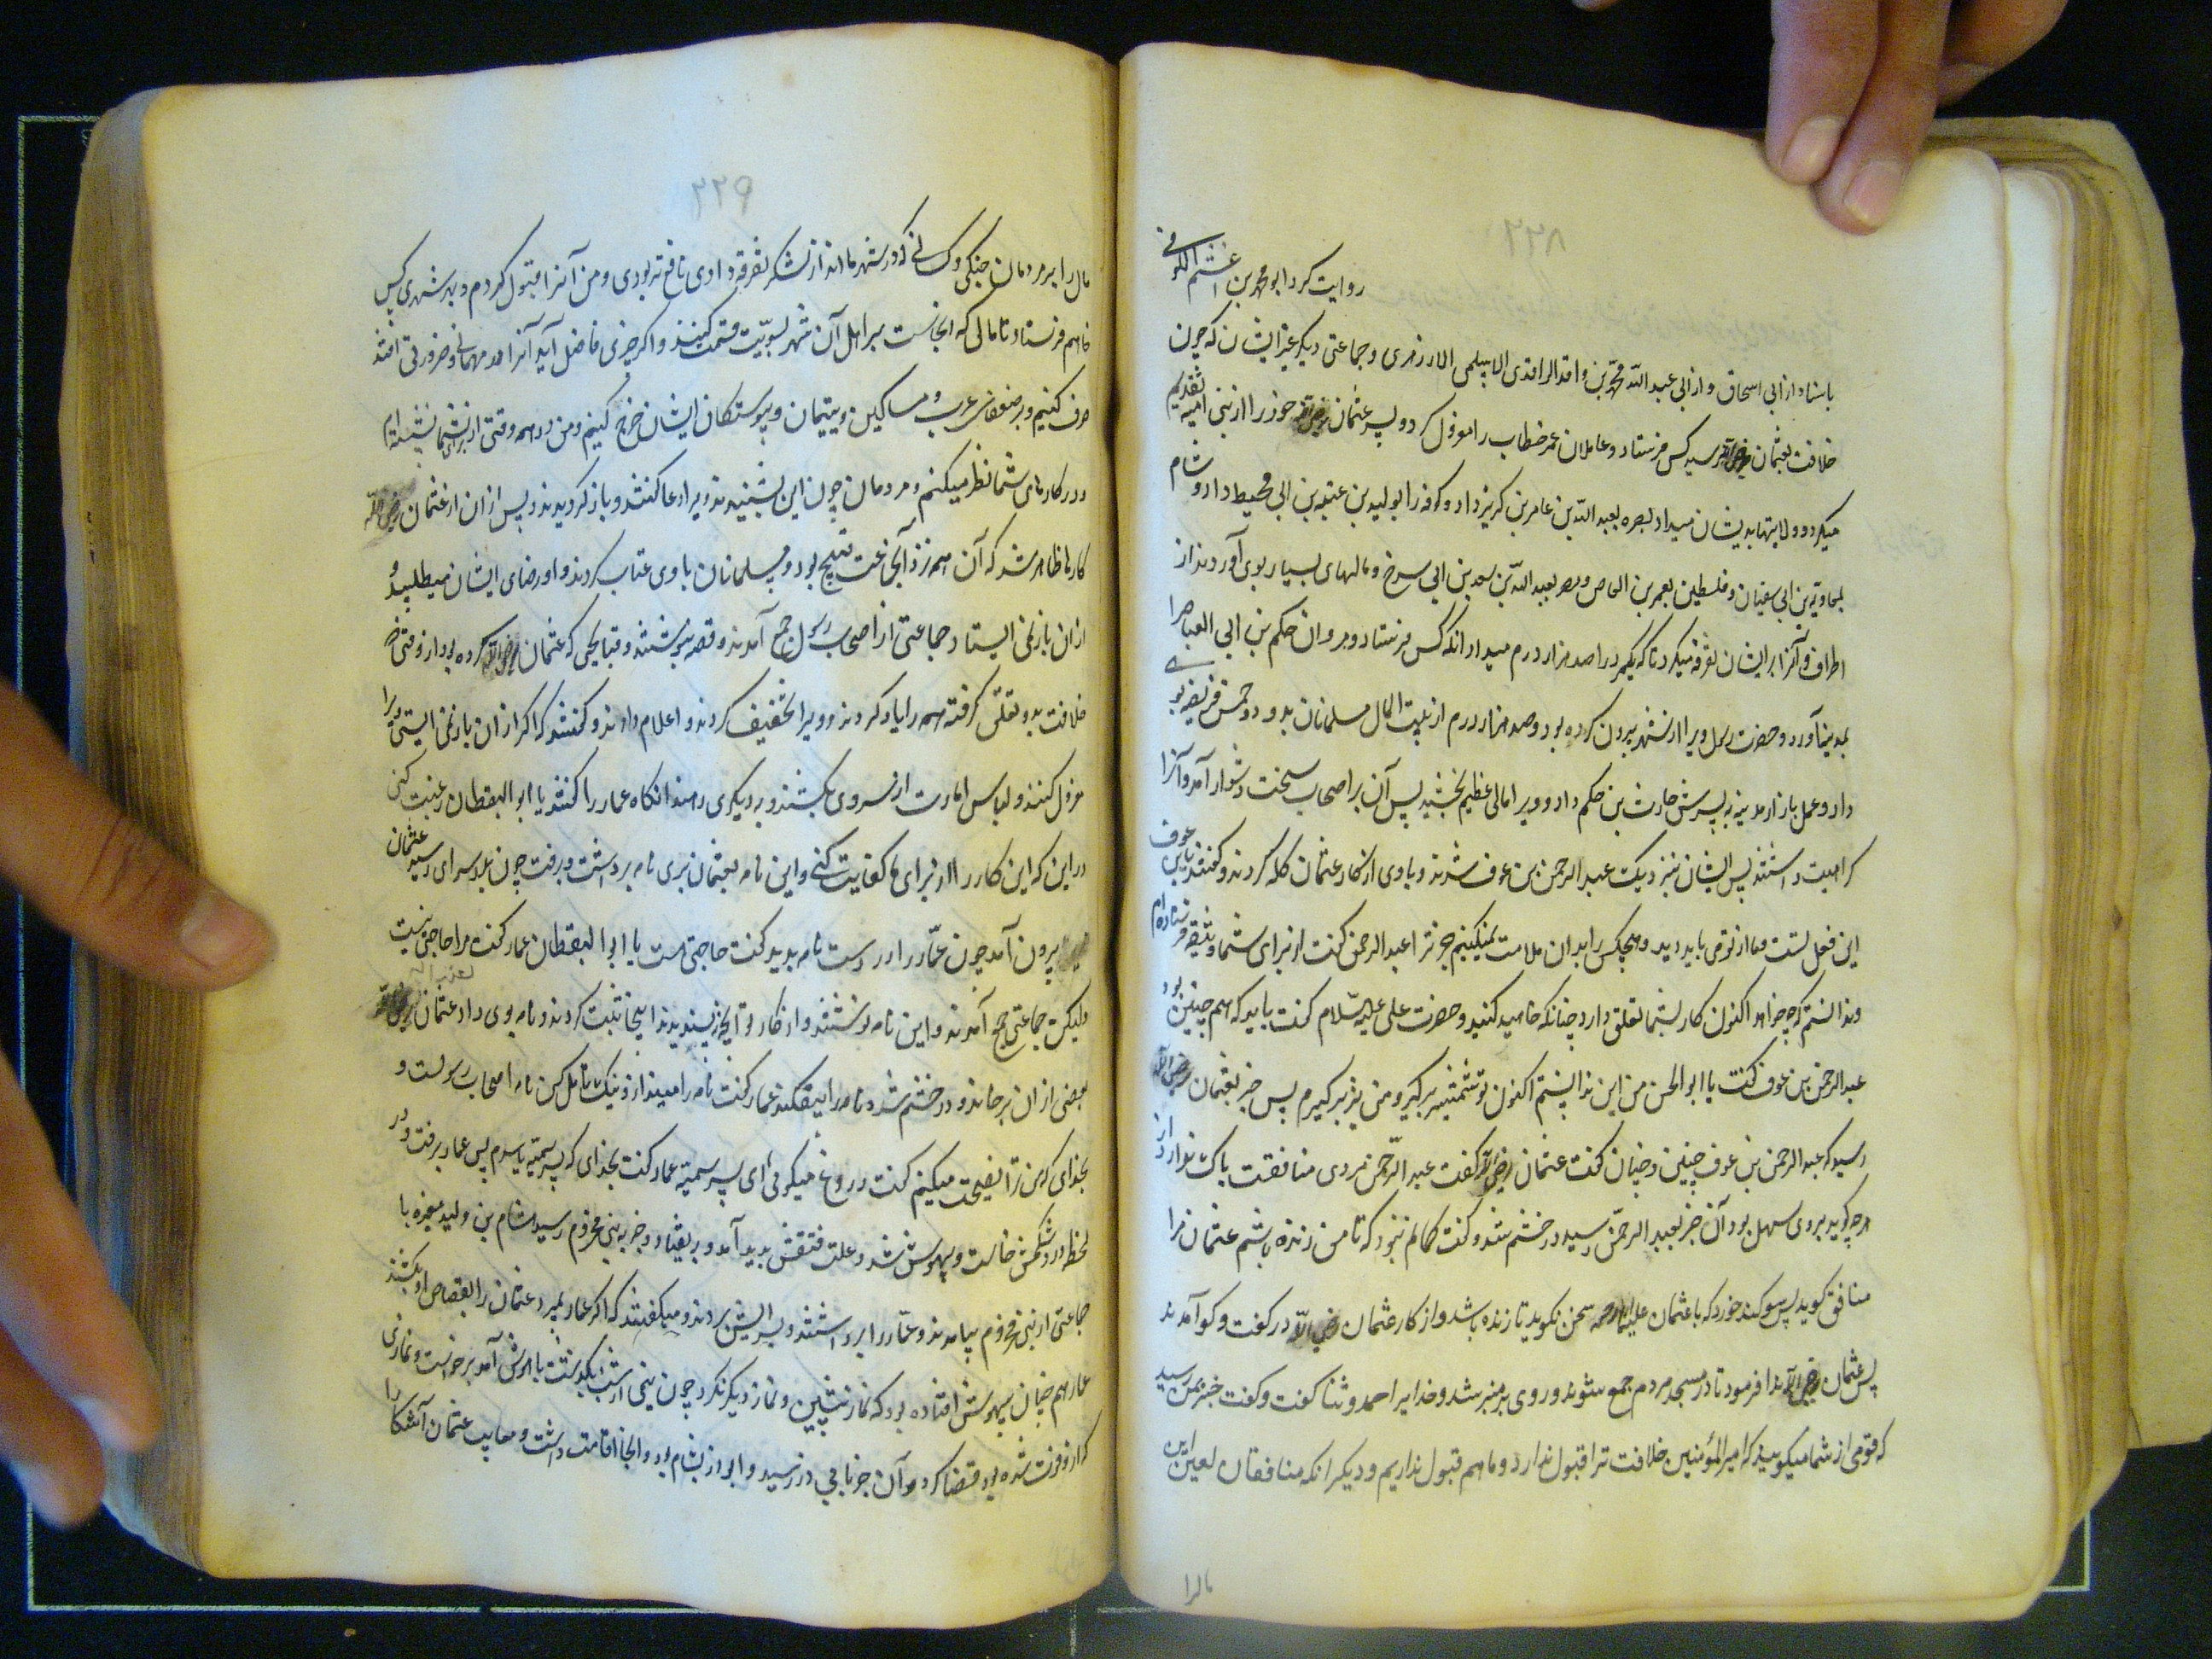 ۲۲۸
روایت کرد ابو محمد بن اعثم الکوفی
باسناد از ابی اسحاق و از ابی عبد الله محمد بن واقد الواقدی الاسلمی و جماعتی دیگر غیر ایشان که چون
خلافت بعثمان رسید کس فرستاد و عاملان عمر خطاب را معزول کرد و پسر عثمان خود را از بنی امیه تقدیم
میکرد و ولایتها بدیشان میداد بصره بعبد الله بن عامر بن کریز داد و کوفه را بولید بن عتبه بن ابی محیط داد و شام
بمعاویة بن ابی سفیان و فلسطین بعمر بن العاص و مصر بعبد الله بن سعد بن ابی سرح و مالهای بسیار بوی آوردند از
اطراف و آنرا بر ایشان تفرقه میکرد تا که یکمرد را صد هزار درم میداد آنکه کس فرستاد و مروان حکم بن ابی العاص را
بمدینه آورد و حضرت رسول ویرا از شهر بیرون کرده بود و صد هزار درم از بیت المال مسلمانان بدو داد و خمس فریقیه بوی
داد و عمل بازار مدینه به پسرش حارث بن حکم داد و ویرا مالی عظیم بخشید پس آن بر اصحاب سخت دشوار آمد و آنرا
کراهیت داشتند پس ایشان بنزدیک عبد الرحمن بن عوف شدند و با وی از کار عثمان گله کردند و گفتند یابن عوف
این فعل تست و ما از تو می باید دید و هیچکس را بدان ملامت نمیکنیم جز ترا عبد الرحمن گفت از برای شما وثیقه فرستاده ام
و ندانستم که چه خواهد اکنون کار بشما تعلق دارد چنانکه خواهید کنید و حضرت علی علیه السلام گفت باید که هم چنین بود
عبد الرحمن بن عوف گفت یا ابو الحسن من این ندانستم اکنون تو شمشیر برگیر و من نیز برگیرم پس خبر بعثمان
رسید که عبد الرحمن بن عوف چنین و چنان گفت عثمان گفت عبد الرحمن مردی منافقست باک ندارد از
هرچه گوید بروی سهل بود آن خبر بعبد الرحمن رسید در خشم شد و گفت گمانم نبود که تا من زنده باشم عثمان مرا
منافق گوید پس سوگند خورد که با عثمان سخن نگوید تا زنده باشد و از کار عثمان در گفت و گو آمدند
پس عثمان ندا فرمود تا در مسجد مردم جمع شوند و روی بر منبر شد و خدایرا حمد و ثنا گفت و گفت خبر بمن رسید
که قومی از شما میگویند که امیر المؤمنین خلافت ترا قبول ندارد و ما هم قبول نداریم و دیگر آنکه منافقان لعین این
مالرا
۲۲۹
مال را بر مردمان جنگی و کسانی که در شهر ما اند از لشکر تفرقه دادی نافع تر بودی و من آنرا قبول کردم و بهر شهری کس
خواهم فرستاد تا مالی که آنجاست بر اهل آن شهر بسویت قسمت کنند و اگر چیزی فاضل آید آنرا در مهمانی و ضرورتی افتد
صرف کنیم و بر ضعفای عرب و مساکین و یتیمان و پیوستکان ایشان خرج کنیم و من در همه وقتی از برای شما نشسته ام
و در کارهای شما نظر میکنم و مردمان چون این بشنیدند ویرا دعا کنند و باز گردیدند و پس از آن از عثمان
کارها ظاهر شد که آن همه نزد آنجماعت قبیح بود و مسلمانان با وی عتاب کردند و او رضای ایشان میطلبید و
از آن باز نمی ایستاد جماعتی از اصحاب رسول جمع آمدند و قصه بنوشتند و قبایحی که عثمان کرده بود از وقتی که
خلافت بدو تعلق گرفته همه را یاد کردند و ویرا تخفیف کردند و اعلام دادند و گفتند که اگر از آن باز نمی ایستی ویرا
عزول کنند و لباس امارت از سر وی بکشند و به دیگری دهند آنگاه عمار را گفتند یا ابو الیقظان رغبت کنی
در این که این کار را از برای ما کفایت کنی و این نامه بعثمان بری نامه برداشت و برفت چون بدر سرای رسید عثمان
بیرون آمد چون عمار را در دست نامه بدید گفت حاجتی هست یا ابو الیقظان عمار گفت مرا حاجتی نیست
ولیکن جماعتی جمع آمدند و این نامه نوشتند و از کار تو آنچه نپسندیدند اینجا ثبت کردند و نامه بوی داد عثمان
بعضی از آن بر خواند و در خشم شد و نامه را بیفکند عمار گفت نامه را میبنداز و نیک تامل کن نامه اصحاب رسولست و
بخدای که من ترا نصیحت میکنم گفت دروغ میگوئی ای پسر سمیه عمار گفت بخدای که پسر سمیه یاسرم پس عمار برفت و در
لحظه درد شکمش خاست و بیهوش شد و علت فتقش پدید آمد و بیفتاد و خبر به بنی مخزوم رسید هشام بن ولید مغیره با
جماعتی از بنی مخزوم بیامدند و عمار را برداشتند و بر بالینش بردند و میگفتند که اگر عمار بمیرد عثمان را بقصاص او بکشند
عمار هم چنان بیهوش افتاده بود که نماز پیشین و نماز دیگر نکرد چون نیمی از شب بگذشت باهوش آمد برخواست و نمازی
که از او فوت شده بود قضا کرد و آن خبر بابی ذر رسید و ابو ذر بشام بود و آنجا اقامت داشت و معایب عثمان آشکارا